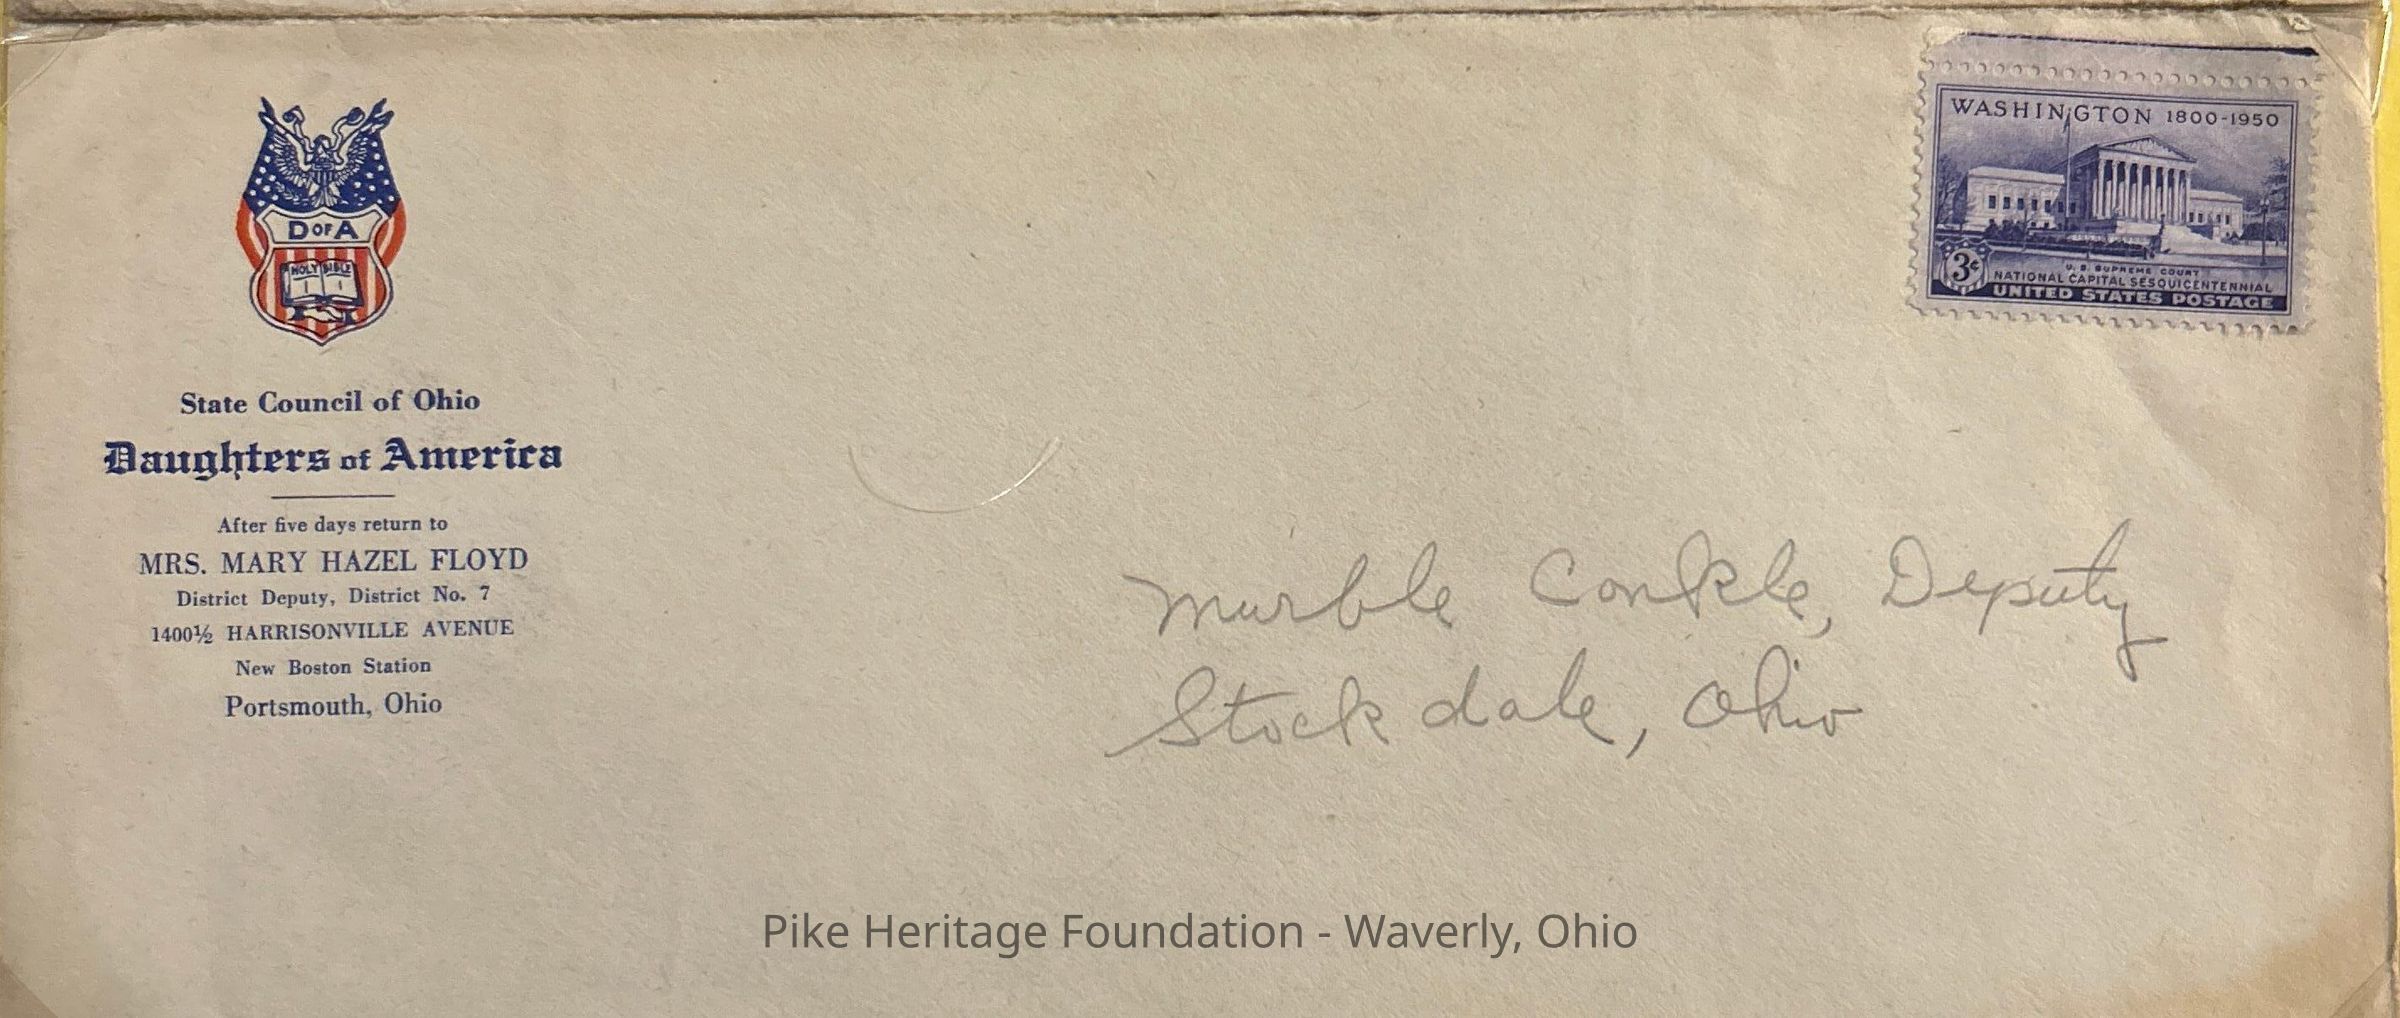 D OF A
HOLY BIBLE
State Council of Ohio
Daughters of America
After five days return to
MRS. MARY HAZEL FLOYD
District Deputy, District No. 7
1400½ HARRISONVILLE AVENUE
New Boston Station
Portsmouth, Ohio
WASHINGTON 1800-1950
3¢
U. S. SUPREME COURT
NATIONAL CAPITAL SESQUICENTENNIAL
UNITED STATES POSTAGE
Murble Conkle, Deputy
Stockdale, Ohio
Pike Heritage Foundation - Waverly, Ohio